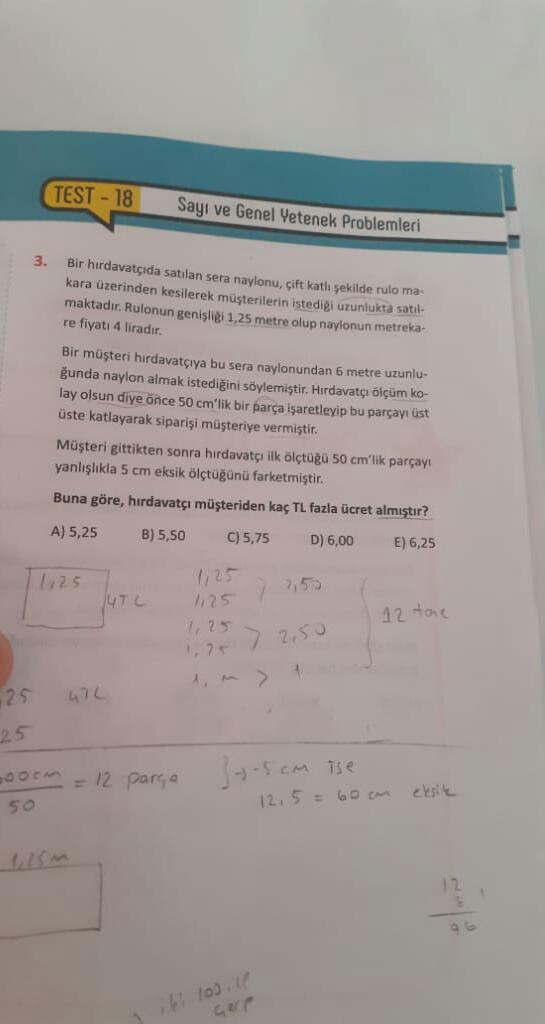 TEST - 18
Sayı ve Genel Yetenek Problemleri
3. Bir hırdavatçıda satılan sera naylonu, çift katlı şekilde rulo ma-
kara üzerinden kesilerek müşterilerin istediği uzunlukta satıl-
maktadır. Rulonun genişliği 1,25 metre olup naylonun metreka-
re fiyatı 4 liradır.
Bir müşteri hırdavatçıya bu sera naylonundan 6 metre uzunlu-
ğunda naylon almak istediğini söylemiştir. Hırdavatçı ölçüm ko-
lay olsun diye önce 50 cm'lik bir parça işaretleyip bu parçayı üst
üste katlayarak siparişi müşteriye vermiştir.
Müşteri gittikten sonra hırdavatçı ilk ölçtüğü 50 cm'lik parçayı
yanlışlıkla 5 cm eksik ölçtüğünü farketmiştir.
Buna göre, hırdavatçı müşteriden kaç TL fazla ücret almıştır?
A) 5,25 B) 5,50 C) 5,75 D) 6,00 E) 6,25
1,25 4TL
1,25
1,25 > 2,50
1,25
1,25 > 2,50
12 tane
1, m > 1
25 4TL
25
00cm
50 = 12 parça
-5 cm ise
12,5 = 60 cm eksik
1,25m
12
8
96